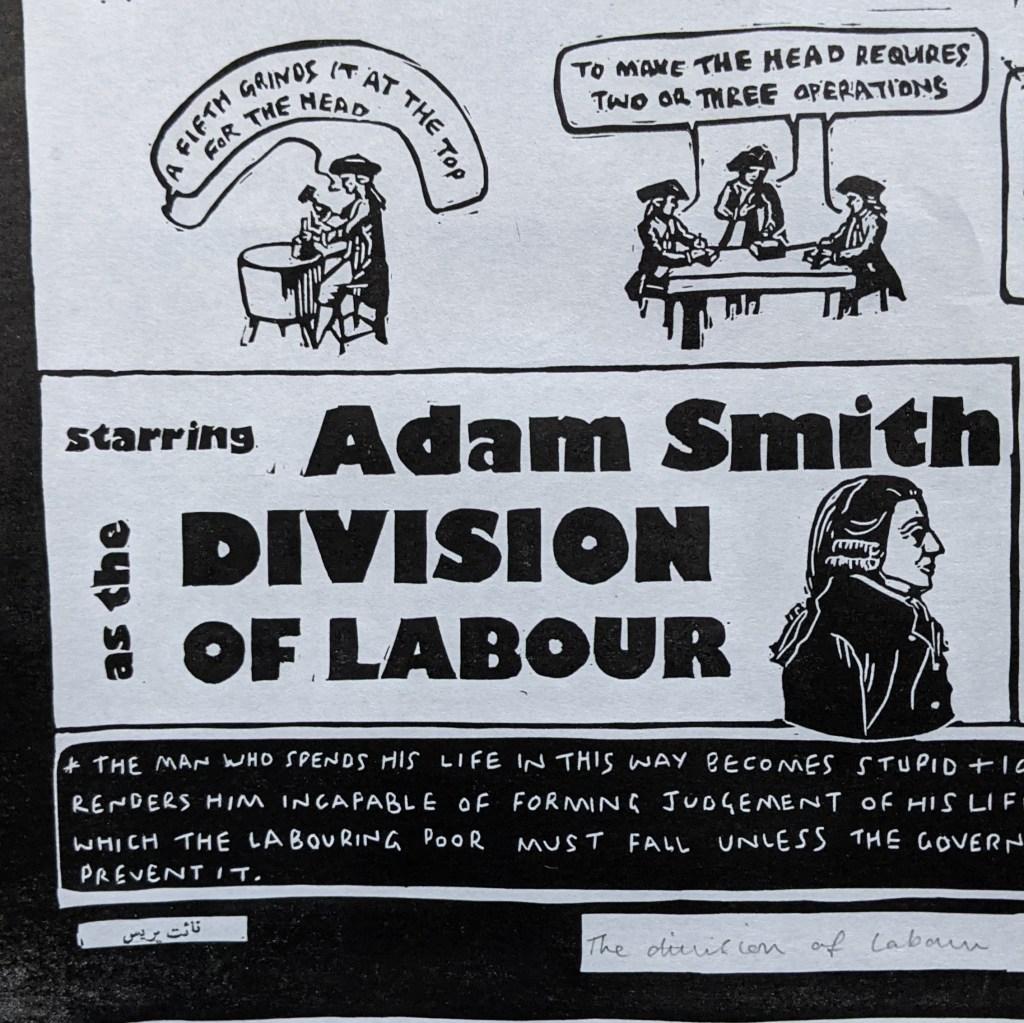 A FIFTH GRINDS IT AT THE TOP
FOR THE HEAD
TO MAKE THE HEAD REQUIRES
TWO OR THREE OPERATIONS
starring Adam Smith
as the DIVISION
OF LABOUR
* THE MAN WHO SPENDS HIS LIFE IN THIS WAY BECOMES STUPID +
RENDERS HIM INCAPABLE OF FORMING JUDGEMENT OF HIS
WHICH THE LABOURING POOR MUST FALL UNLESS THE
PREVENT IT.
قائت بريس
The division of Labour